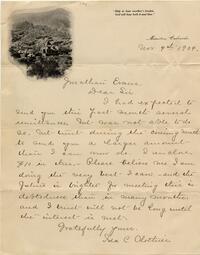 Manitou, Colorado.
Nov. 9th 1904.
Jonathan Evans
Dear Sir
I had expected to
send you this past month several
remittances but was not able to do
so, but trust during the coming month
to send you a larger amount
than I am now. I enclose
Please believe me I am
doing the very best I can and the
future is brighter for meeting this in
debtedness than in many months
and I trust will not be long until
the interest is met.
Gratefully yours,
Ida C.